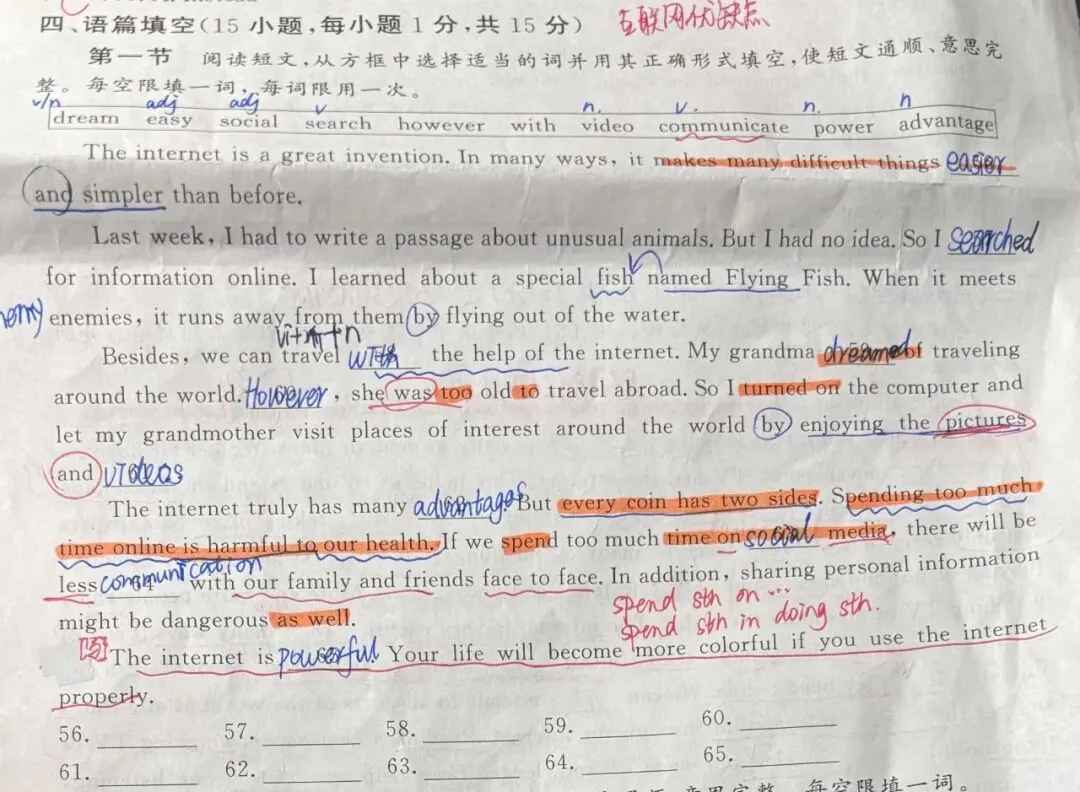 四、语篇填空(15 小题,每小题 1 分,共 15 分) 互联网优缺点
第一节 阅读短文,从方框中选择适当的词并用其正确形式填空,使短文通顺、意思完
整。每空限填一词,每词限用一次。
v/n adj adj v n. v. n. n
dream easy social search however with video communicate power advantage
The internet is a great invention. In many ways, it makes many difficult things easier
and simpler than before.
Last week, I had to write a passage about unusual animals. But I had no idea. So I searched
for information online. I learned about a special fish named Flying Fish. When it meets
enemies, it runs away from them by flying out of the water.
Besides, we can travel with the help of the internet. My grandma dreamed of traveling
around the world. However, she was too old to travel abroad. So I turned on the computer and
let my grandmother visit places of interest around the world by enjoying the pictures
and videos
The internet truly has many advantages But every coin has two sides. Spending too much
time online is harmful to our health. If we spend too much time on social media, there will be
less communication with our family and friends face to face. In addition, sharing personal information
might be dangerous as well.
spend sth on …
spend sth in doing sth.
The internet is powerful Your life will become more colorful if you use the internet
properly.
56. 57. 58. 59. 60.
61. 62. 63. 64. 65.
每空限填一词。